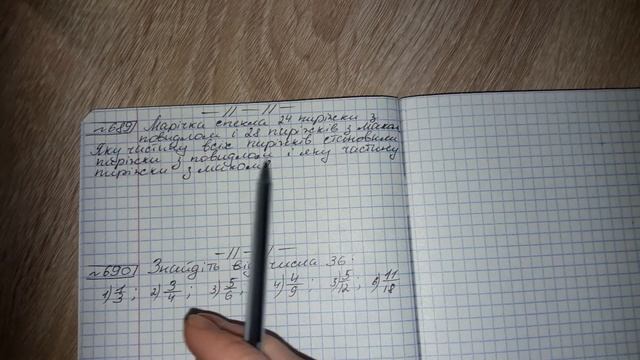 — // — // —
№689 Марічка спекла 24 пиріжки з
повидлом і 28 пиріжків з маком.
Яку частину всіх пиріжків становили
пиріжки з повидлом і яку частину
пиріжки з маком?
— // — // —
№690 Знайдіть від числа 36:
1) 1/3; 2) 3/4; 3) 5/6; 4) 4/9; 5) 5/12; 6) 11/18